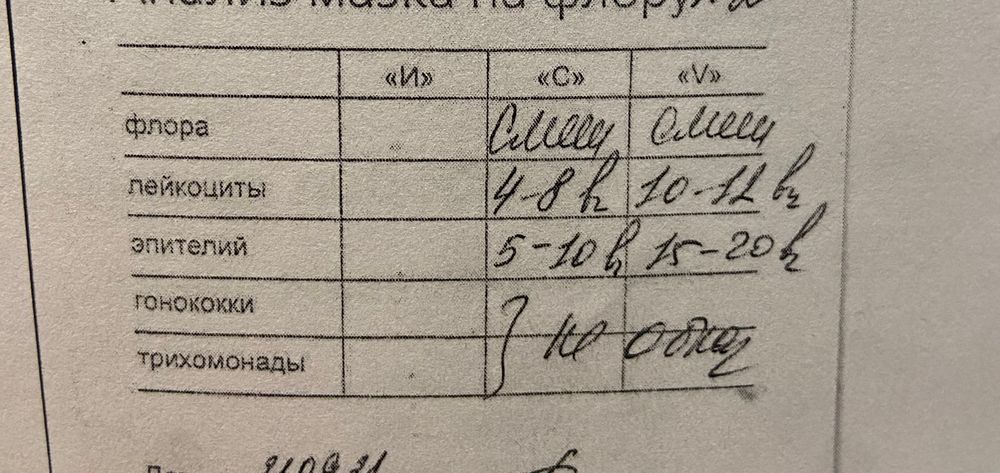 Анализ мазка на флору
«И» «С» «V»
флора смеш смеш
лейкоциты 4-8 в 10-12 в
эпителий 5-10 в 15-20 в
гонококки
} не обнар
трихомонады